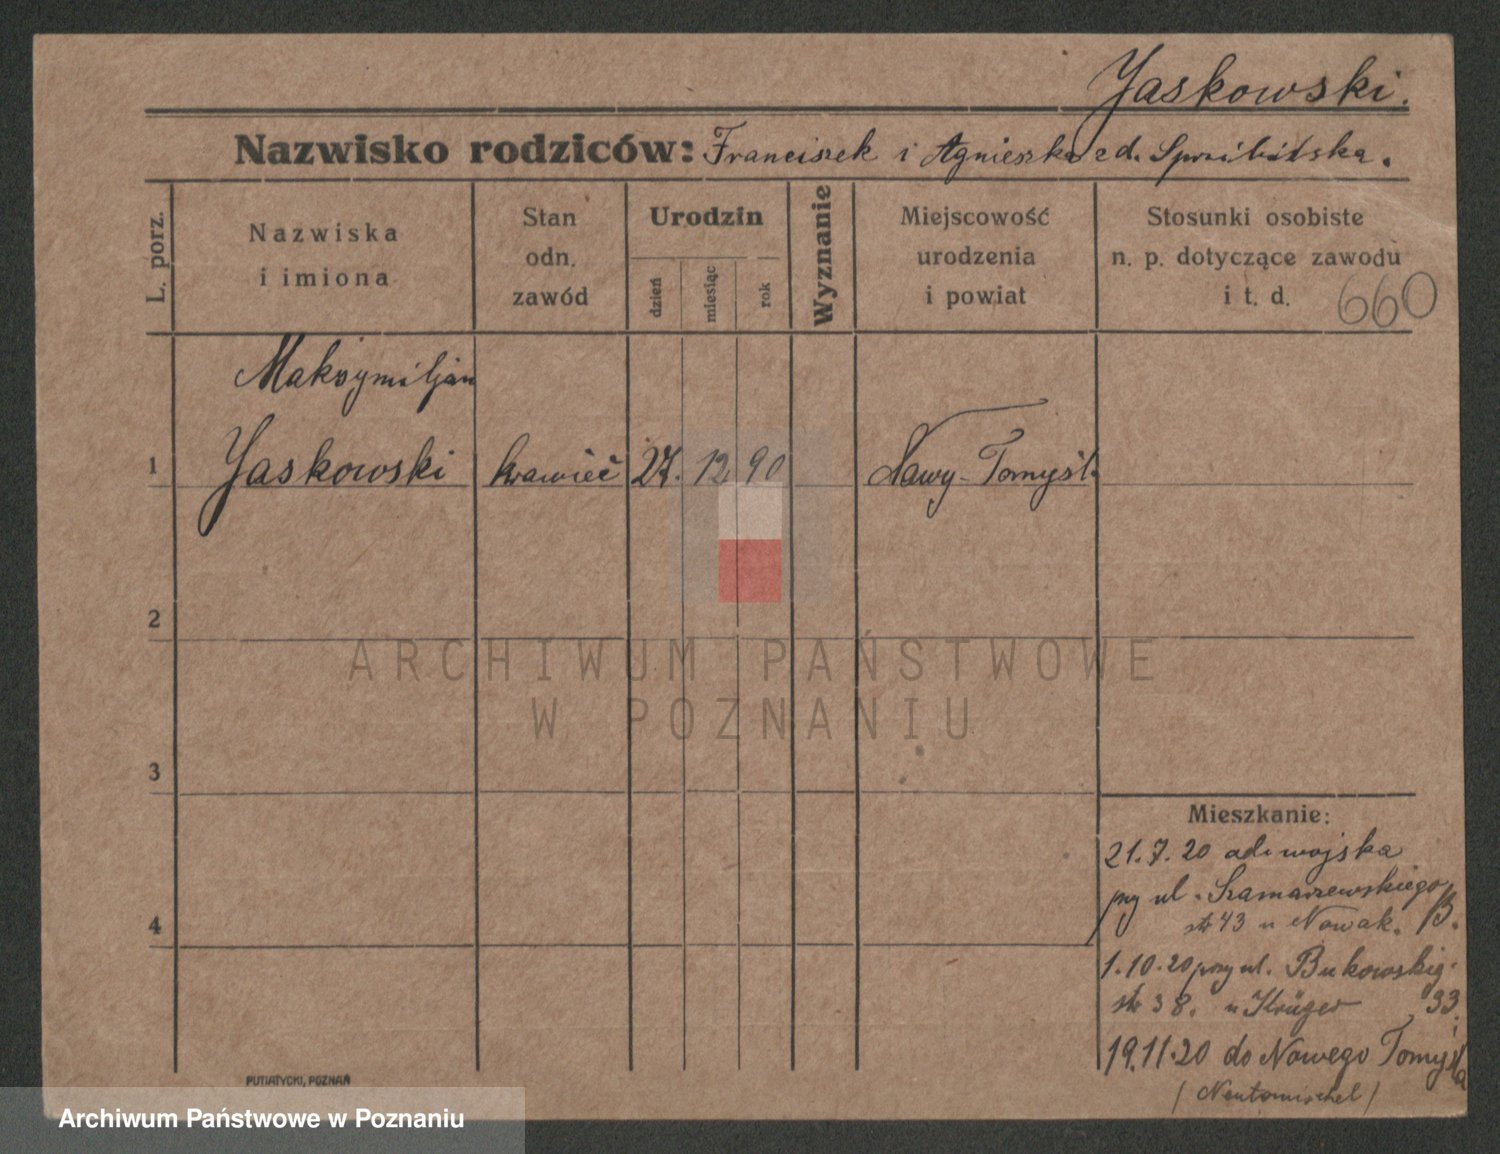 Jaskowski.
Nazwisko rodziców: Franciszek i Agnieszka z d.
L. porz.
Nazwiska
i imiona
Stan
odn.
zawód
Urodzin
dzień
miesiąc
rok
Wyznanie
Miejscowość
urodzenia
i powiat
Stosunki osobiste
n. p. dotyczące zawodu
i t. d.
660
Maksymiljan
1 Jaskowski krawiec 27. 12 90 Nowy-Tomyśl.
2
ARCHIWUM PAŃSTWOWE
W POZNANIU
3
Mieszkanie:
21.7.20 od wojska
przy ul. Szamarzewskiego
str 43 u Nowak. B.
4
1.10.20 przy ul. Bukowskiej
str 38. u Krüger 33.
19.11.20 do Nowego Tomyśla
(Neutomischel)
PUTIATYCKI, POZNAŃ
Archiwum Państwowe w Poznaniu